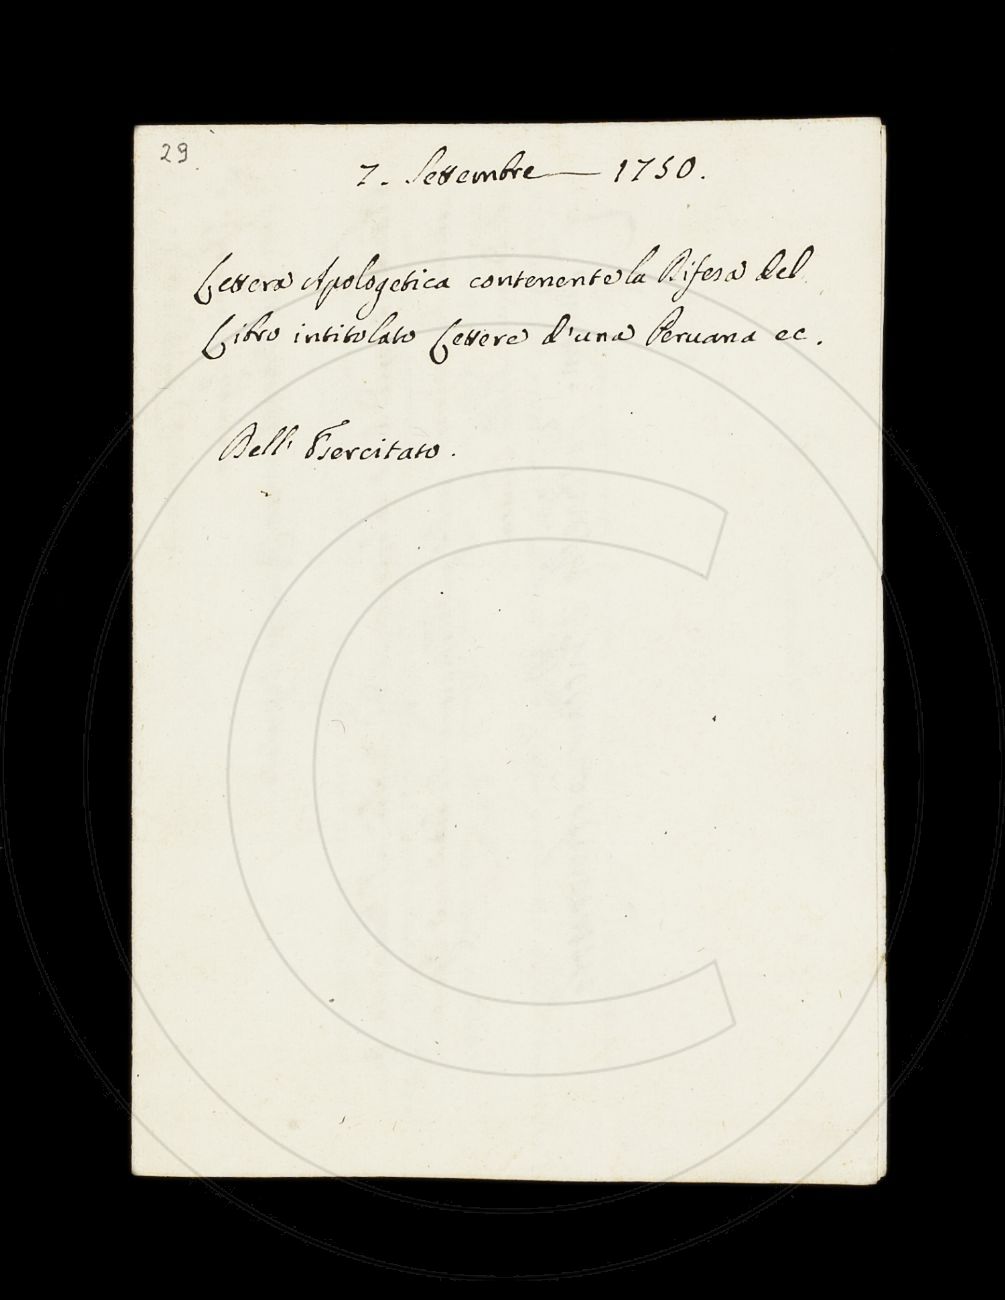 29.
7. Settembre — 1750.
Lettera Apologetica contenente la Difesa del
Libro intitolato Lettere d'una Peruana ec.
Dell' Esercitato.